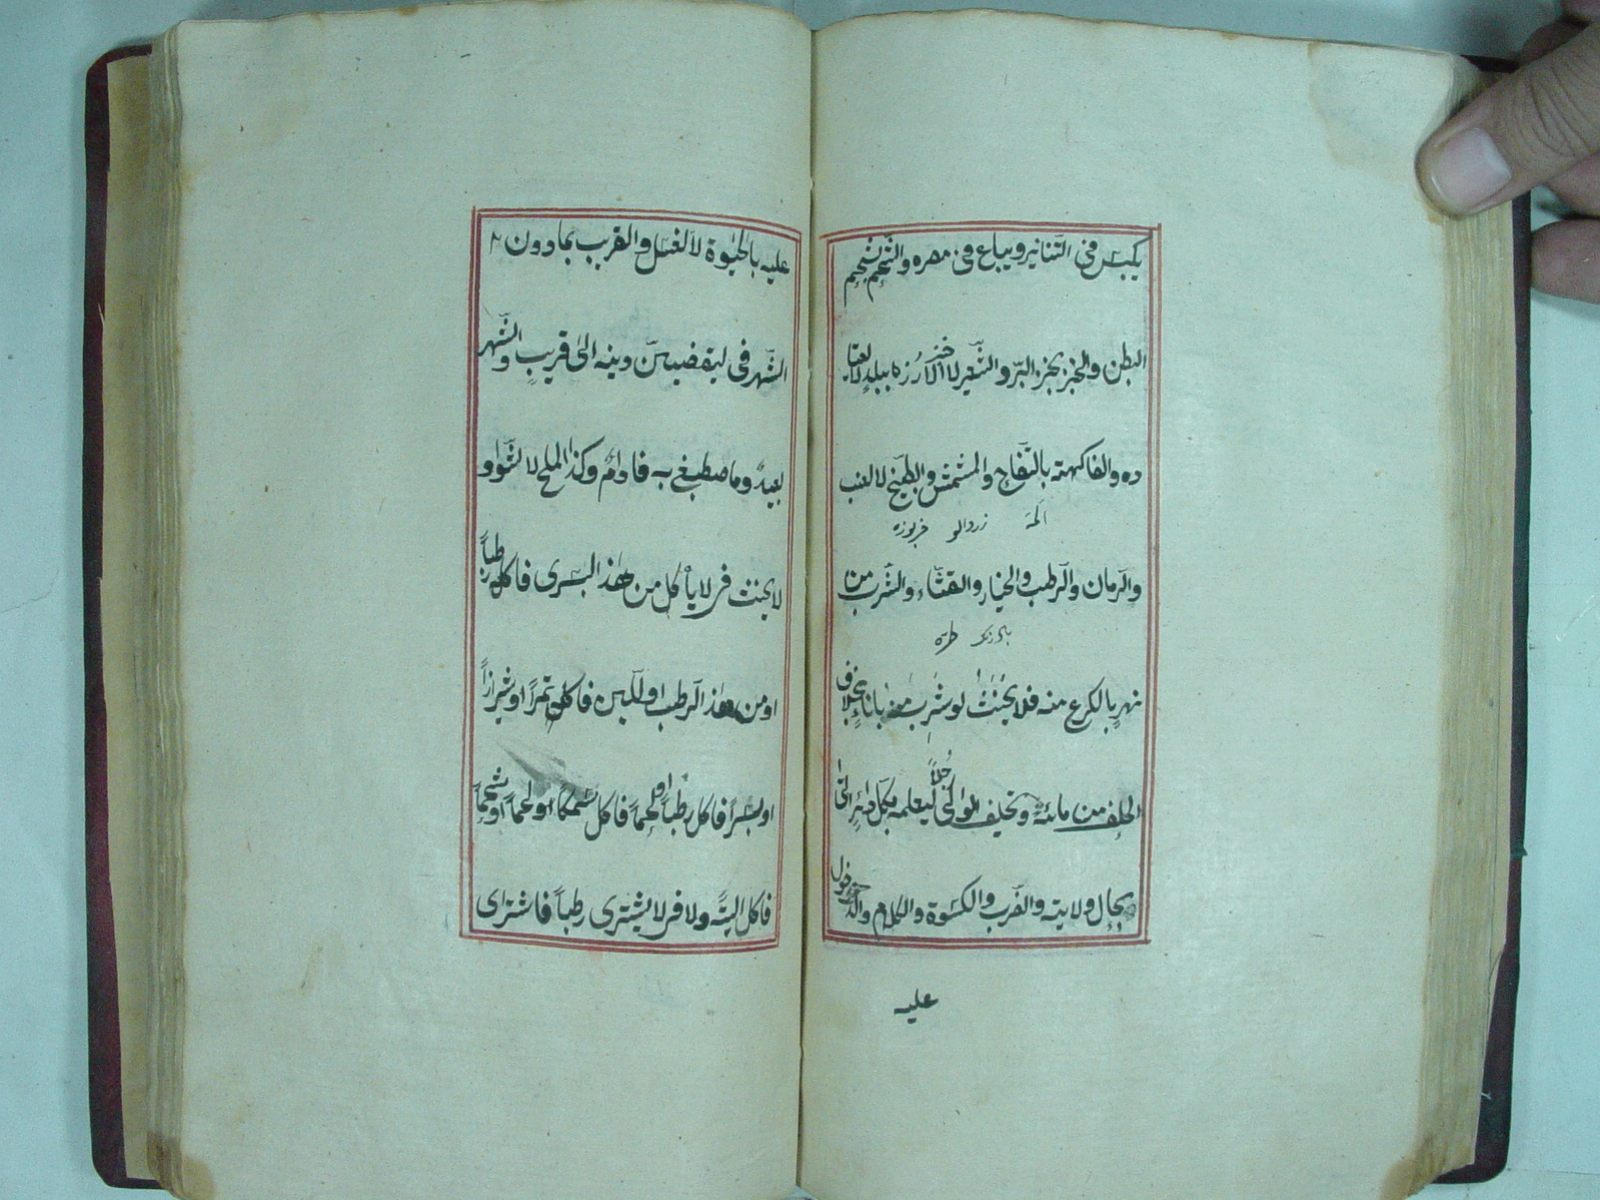 يكبس فى التنانير ويباع فى مصره والشحم بشحم
البطن والخبز بخبز البرّ والشعير لا خبز الارُزّ ببلدٍ لا يعتا
ده والفاكهة بالتفّاح والمشمش والبطيخ لا العنب
زردالو خربوزه
والرمان والرطب والخيار والقثّاء والشرب من
بادرنك
نهرٍ بالكرع منه فلا يحنث لو شرب منه باناءٍ بخلاف
الحلف من مائه وتحليف الوالى رجلاً ليعلمه بكل داعرٍ اتى
بحال ولايته والضرب والكسوة والكلام والدخول
عليه
عليه بالحيٰوة لا الغسل والقريب بما دون
الشهر فى ليقضينّ دينه الى قريبٍ والشهر
بعيدٌ وما صطبغ به فادامٌ وكذا الملح لا الشواء و
لا يحنث فى لا يأكل من هذا البسر فاكله رطباً
او من هذا الرطب او اللبن فاكله تمراً او شيرازاً
او بسراً فاكل رطباً او لحماً فاكل سمكاً او لحماً او شحماً
فاكل الية ولا فى لا يشترى رطباً فاشترى